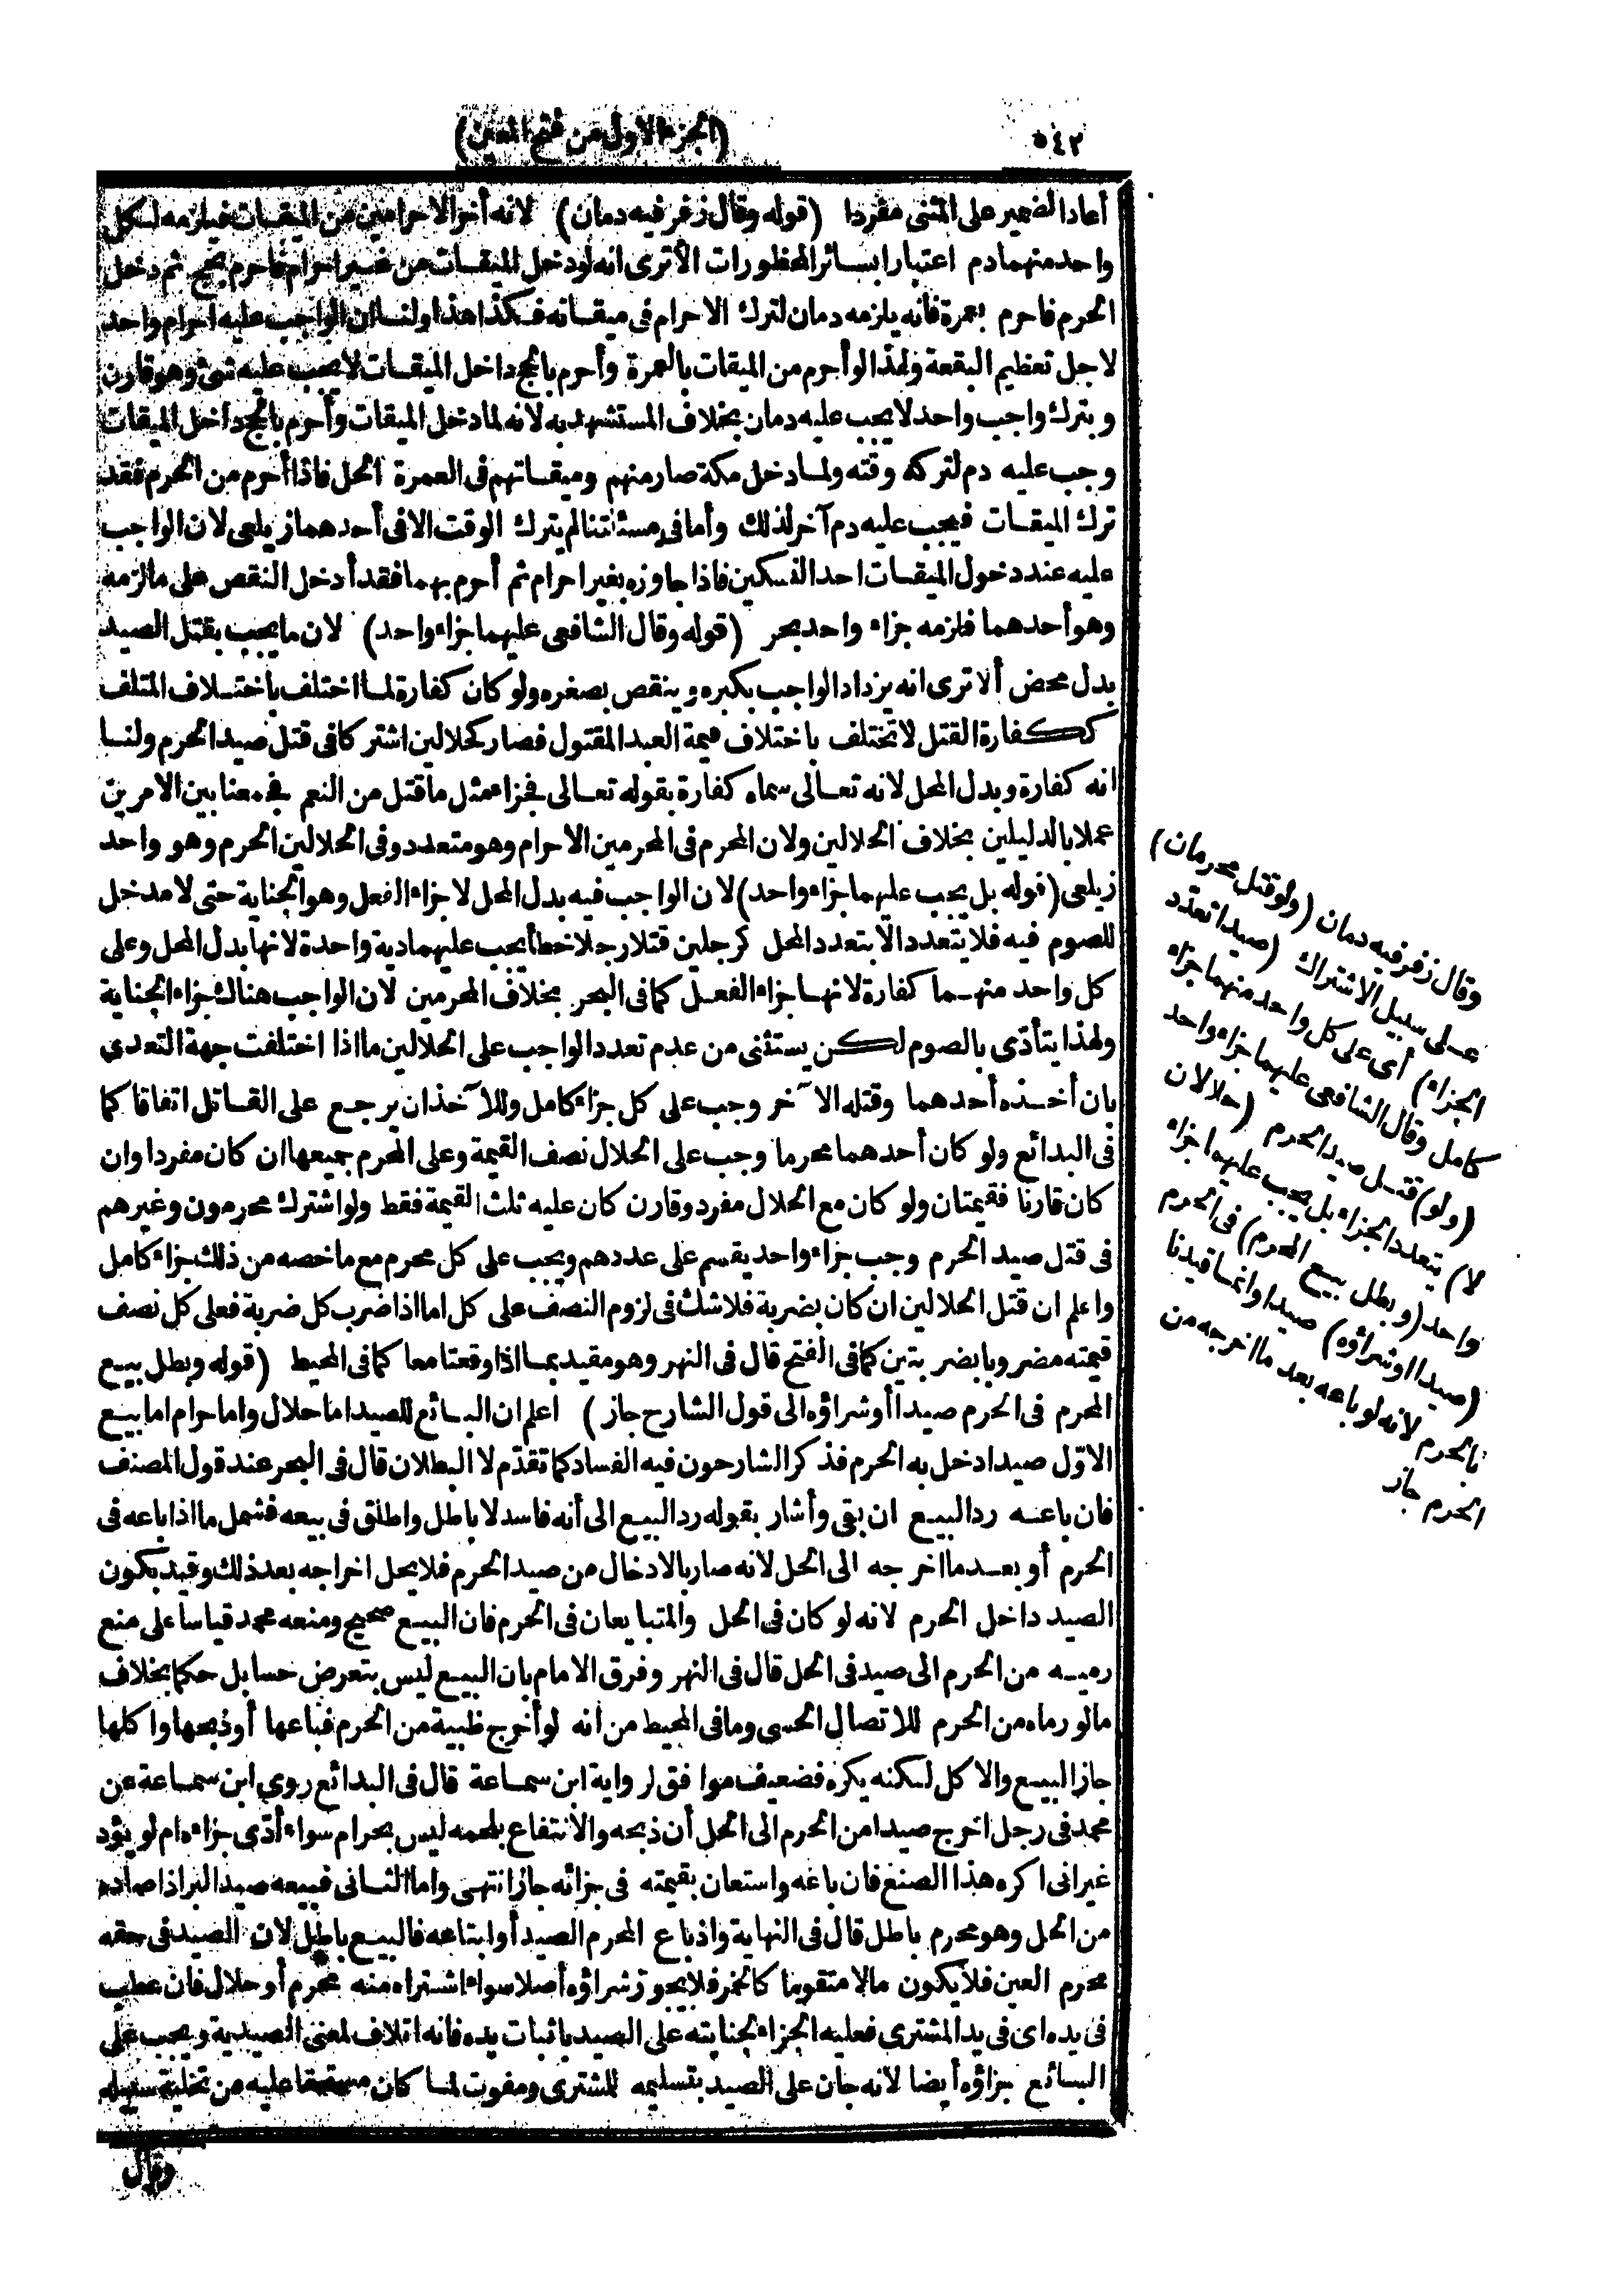 ٥٤٢
(الجزء الاول من فتح المعين)
أعاد الضمير على المثنى مفردا (قوله وقال زفر فيه دمان) لانه أخر الاحرامين من الميقات فيلزمه لكل
واحد منهما دم اعتبارا بسائر المحظورات ألا ترى انه لو دخل الميقات من غير احرام فاحرم بحج ثم دخل
الحرم فاحرم بعمرة فانه يلزمه دمان لترك الاحرام فى ميقاته فكذا هذا ولنا ان الواجب عليه احرام واحد
لاجل تعظيم البقعة ولهذا لو أحرم من الميقات بالعمرة وأحرم بالحج داخل الميقات لا يجب عليه شئ وهو قارن
وبترك واجب واحد لا يجب عليه دمان بخلاف المستشهد به لانه لما دخل الميقات وأحرم بالحج داخل الميقات
وجب عليه دم لتركه وقته ولما دخل مكة صار منهم وميقاتهم فى العمرة الحل فاذا أحرم من الحرم فقد
ترك الميقات فيجب عليه دم آخر لذلك وأما فى مسئلتنا لم يترك الوقت الا فى أحدهما زيلعى لان الواجب
عليه عند دخول الميقات احد النسكين فاذا جاوزه بغير احرام ثم أحرم بهما فقد أدخل النقص على ما لزمه
وهو أحدهما فلزمه جزاء واحد بحر (قوله وقال الشافعى عليهما جزاء واحد) لان ما يجب بقتل الصيد
بدل محض ألا ترى انه يزداد الواجب بكبره وينقص بصغره ولو كان كفارة لما اختلف باختلاف المتلف
ككفارة القتل لا تختلف باختلاف قيمة العبد المقتول فصار كحلالين اشتركا فى قتل صيد الحرم ولنا
انه كفارة وبدل المحل لانه تعالى سماه كفارة بقوله تعالى فجزاء مثل ما قتل من النعم فجمعنا بين الامرين
عملا بالدليلين بخلاف الحلالين ولان المحرم فى المحرمين الاحرام وهو متعدد وفى الحلالين الحرم وهو واحد
زيلعى (قوله بل يجب عليهما جزاء واحد) لان الواجب فيه بدل المحل لا جزاء الفعل وهو الجناية حتى لا مدخل
للصوم فيه فلا يتعدد الا بتعدد المحل كرجلين قتلا رجلا خطأ يجب عليهما دية واحدة لانها بدل المحل وعلى
كل واحد منهما كفارة لانها جزاء الفعل كما فى البحر بخلاف المحرمين لان الواجب هناك جزاء الجناية
ولهذا يتأدّى بالصوم لكن يستثنى من عدم تعدد الواجب على الحلالين ما اذا اختلفت جهة التعدي
بان أخذه أحدهما وقتله الآخر وجب على كل جزاء كامل وللآخذ ان يرجع على القاتل اتفاقا كما
فى البدائع ولو كان أحدهما محرما وجب على الحلال نصف القيمة وعلى المحرم جميعها ان كان مفردا وان
كان قارنا فقيمتان ولو كان مع الحلال مفرد وقارن كان عليه ثلث القيمة فقط ولو اشترك محرمون وغيرهم
فى قتل صيد الحرم وجب جزاء واحد يقسم على عددهم ويجب على كل محرم مع ما خصه من ذلك جزاء كامل
واعلم ان قتل الحلالين ان كان بضربة فلا شك فى لزوم النصف على كل اما اذا ضرب كل ضربة فعلى كل نصف
قيمته مضروبا بضربتين كما فى الفتح قال فى النهر وهو مقيد بما اذا وقعتا معا كما فى المحيط (قوله وبطل بيع
المحرم فى الحرم صيدا أو شراؤه الى قول الشارح جاز) اعلم ان البائع للصيد اما حلال واما حرام اما بيع
الاوّل صيدا دخل به الحرم فذكر الشارحون فيه الفساد كما تقدّم لا البطلان قال فى البحر عند قول المصنف
فان باعه رد البيع ان بقى وأشار بقوله رد البيع الى أنه فاسد لا باطل واطلق فى بيعه فشمل ما اذا باعه فى
الحرم أو بعد ما اخرجه الى الحل لانه صار بالادخال من صيد الحرم فلا يحل اخراجه بعد ذلك وقيد بكون
الصيد داخل الحرم لانه لو كان فى الحل والمتبايعان فى الحرم فان البيع صحيح ومنعه محمد قياسا على منع
رميه من الحرم الى صيد فى الحل قال فى النهر وفرق الامام بان البيع ليس بتعرض حسا بل حكما بخلاف
ما لو رماه من الحرم للاتصال الحسى وما فى المحيط من انه لو أخرج ظبية من الحرم فباعها أو ذبحها واكلها
جاز البيع والاكل لكنه يكره فضعيف موافق لرواية ابن سماعة قال فى البدائع روى ابن سماعة عن
محمد فى رجل اخرج صيدا من الحرم الى الحل أن ذبحه والانتفاع بلحمه ليس بحرام سواء أدّى جزاءه ام لو يؤد
غير انى اكره هذا الصنع فان باعه واستعان بقيمته فى جزائه جاز انتهى واما الثانى فبيعه صيد البر اذا صاده
من الحل وهو محرم باطل قال فى النهاية واذ باع المحرم الصيد أو ابتاعه فالبيع باطل لان الصيد فى حقه
محرم العين فلا يكون مالا متقوما كالخمر فلا يجوز شراؤه أصلا سواء اشتراه منه محرم أو حلال فان عطب
فى يده اى فى يد المشترى فعليه الجزاء لجنايته على الصيد باثبات يده فانه اتلاف لمعنى الصيدية ويجب على
البائع جزاؤه أيضا لانه جان على الصيد بتسليمه للمشترى ومفوت لما كان مستحقا عليه من تخلية سبيله
وقال
وقال زفر فيه دمان (ولو قتل محرمان)
على سبيل الاشتراك (صيدا تعدّد
الجزاء) أى على كل واحد منهما جزاء
كامل وقال الشافعى عليهما جزاء واحد
(ولو) قتل صيد الحرم (حلالان
لا) يتعدد الجزاء بل يجب عليهما جزاء
واحد (وبطل بيع المحرم) فى الحرم
(صيدا او شراؤه) صيدا وانما قيدنا
بالحرم لانه لو باعه بعد ما اخرجه من
الحرم جاز